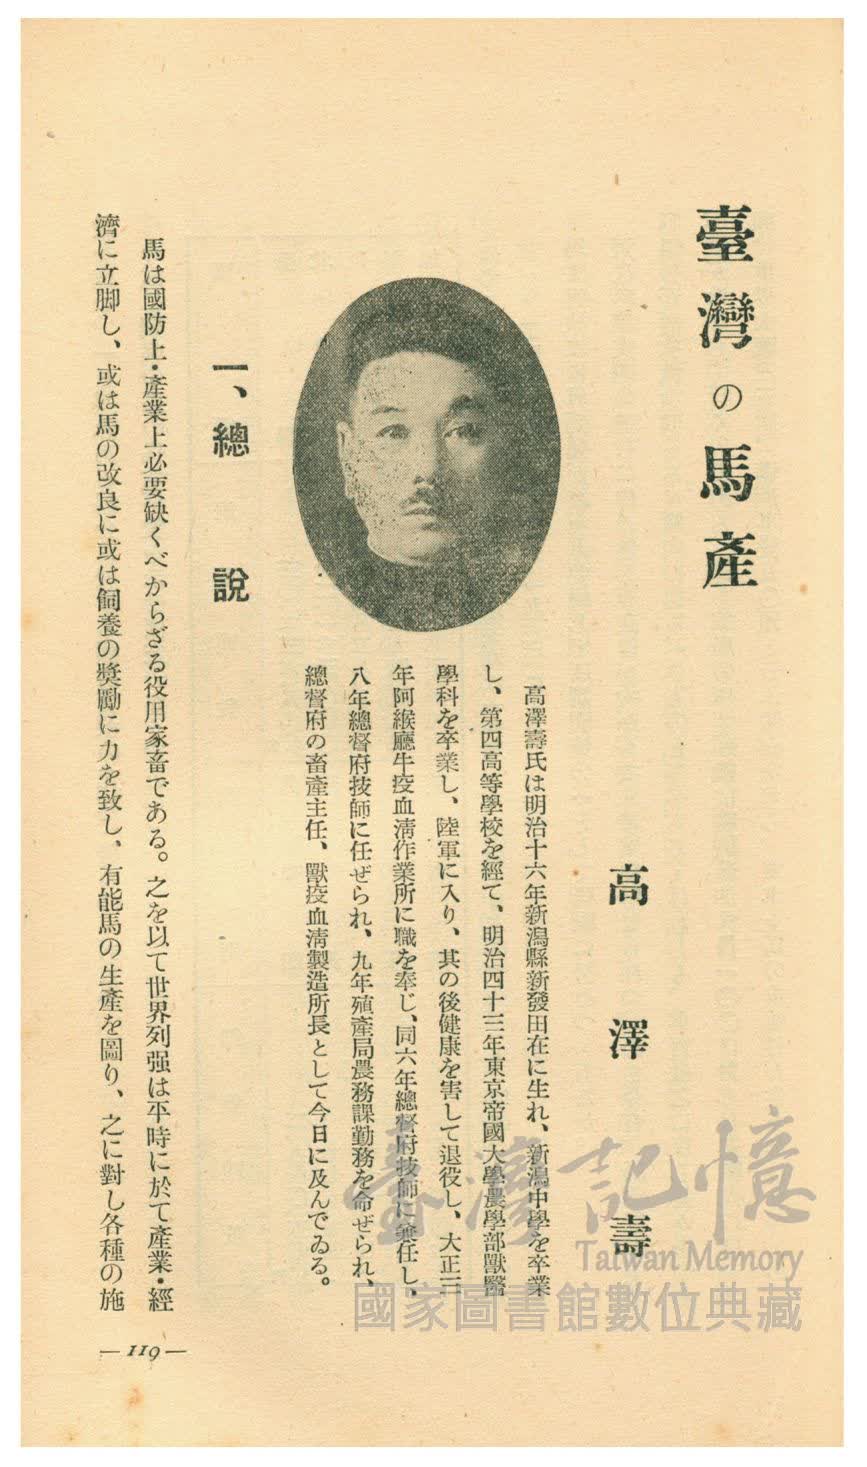 臺灣の馬產
高澤壽
高澤壽氏は明治十六年新潟縣新發田在に生れ、新潟中學を卒業
し、第四高等學校を經て、明治四十三年東京帝國大學農學部獸醫
學科を卒業し、陸軍に入り、其の後健康を害して退役し、大正三
年阿緱廳牛疫血淸作業所に職を奉じ、同六年總督府技師に兼任し、
八年總督府技師に任ぜられ、九年殖產局農務課勤務を命ぜられ、
總督府の畜產主任、獸疫血淸製造所長として今日に及んでゐる。
一、總說
馬は國防上・產業上必要缺くべからざる役用家畜である。之を以て世界列强は平時に於て產業・經
濟に立脚し、或は馬の改良に或は飼養の奬勵に力を致し、有能馬の生產を圖り、之に對し各種の施
—119—
臺灣記憶
Taiwan Memory
國家圖書館數位典藏